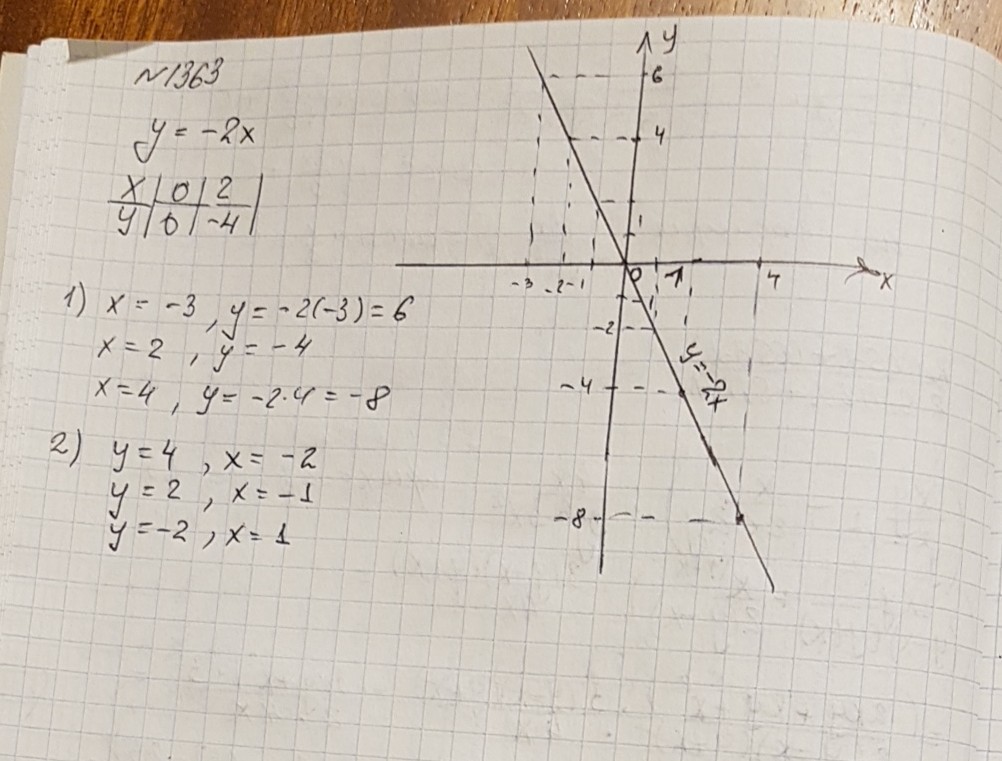 №1363
y = -2x
x | 0 | 2
y | 0 | -4
1) x = -3, y = -2(-3) = 6
x = 2, y = -4
x = 4, y = -2·4 = -8
2) y = 4, x = -2
y = 2, x = -1
y = -2, x = 1
y
6
4
1
-3 -2 -1 0 1 4 x
-2
-4
-8
y=-2x